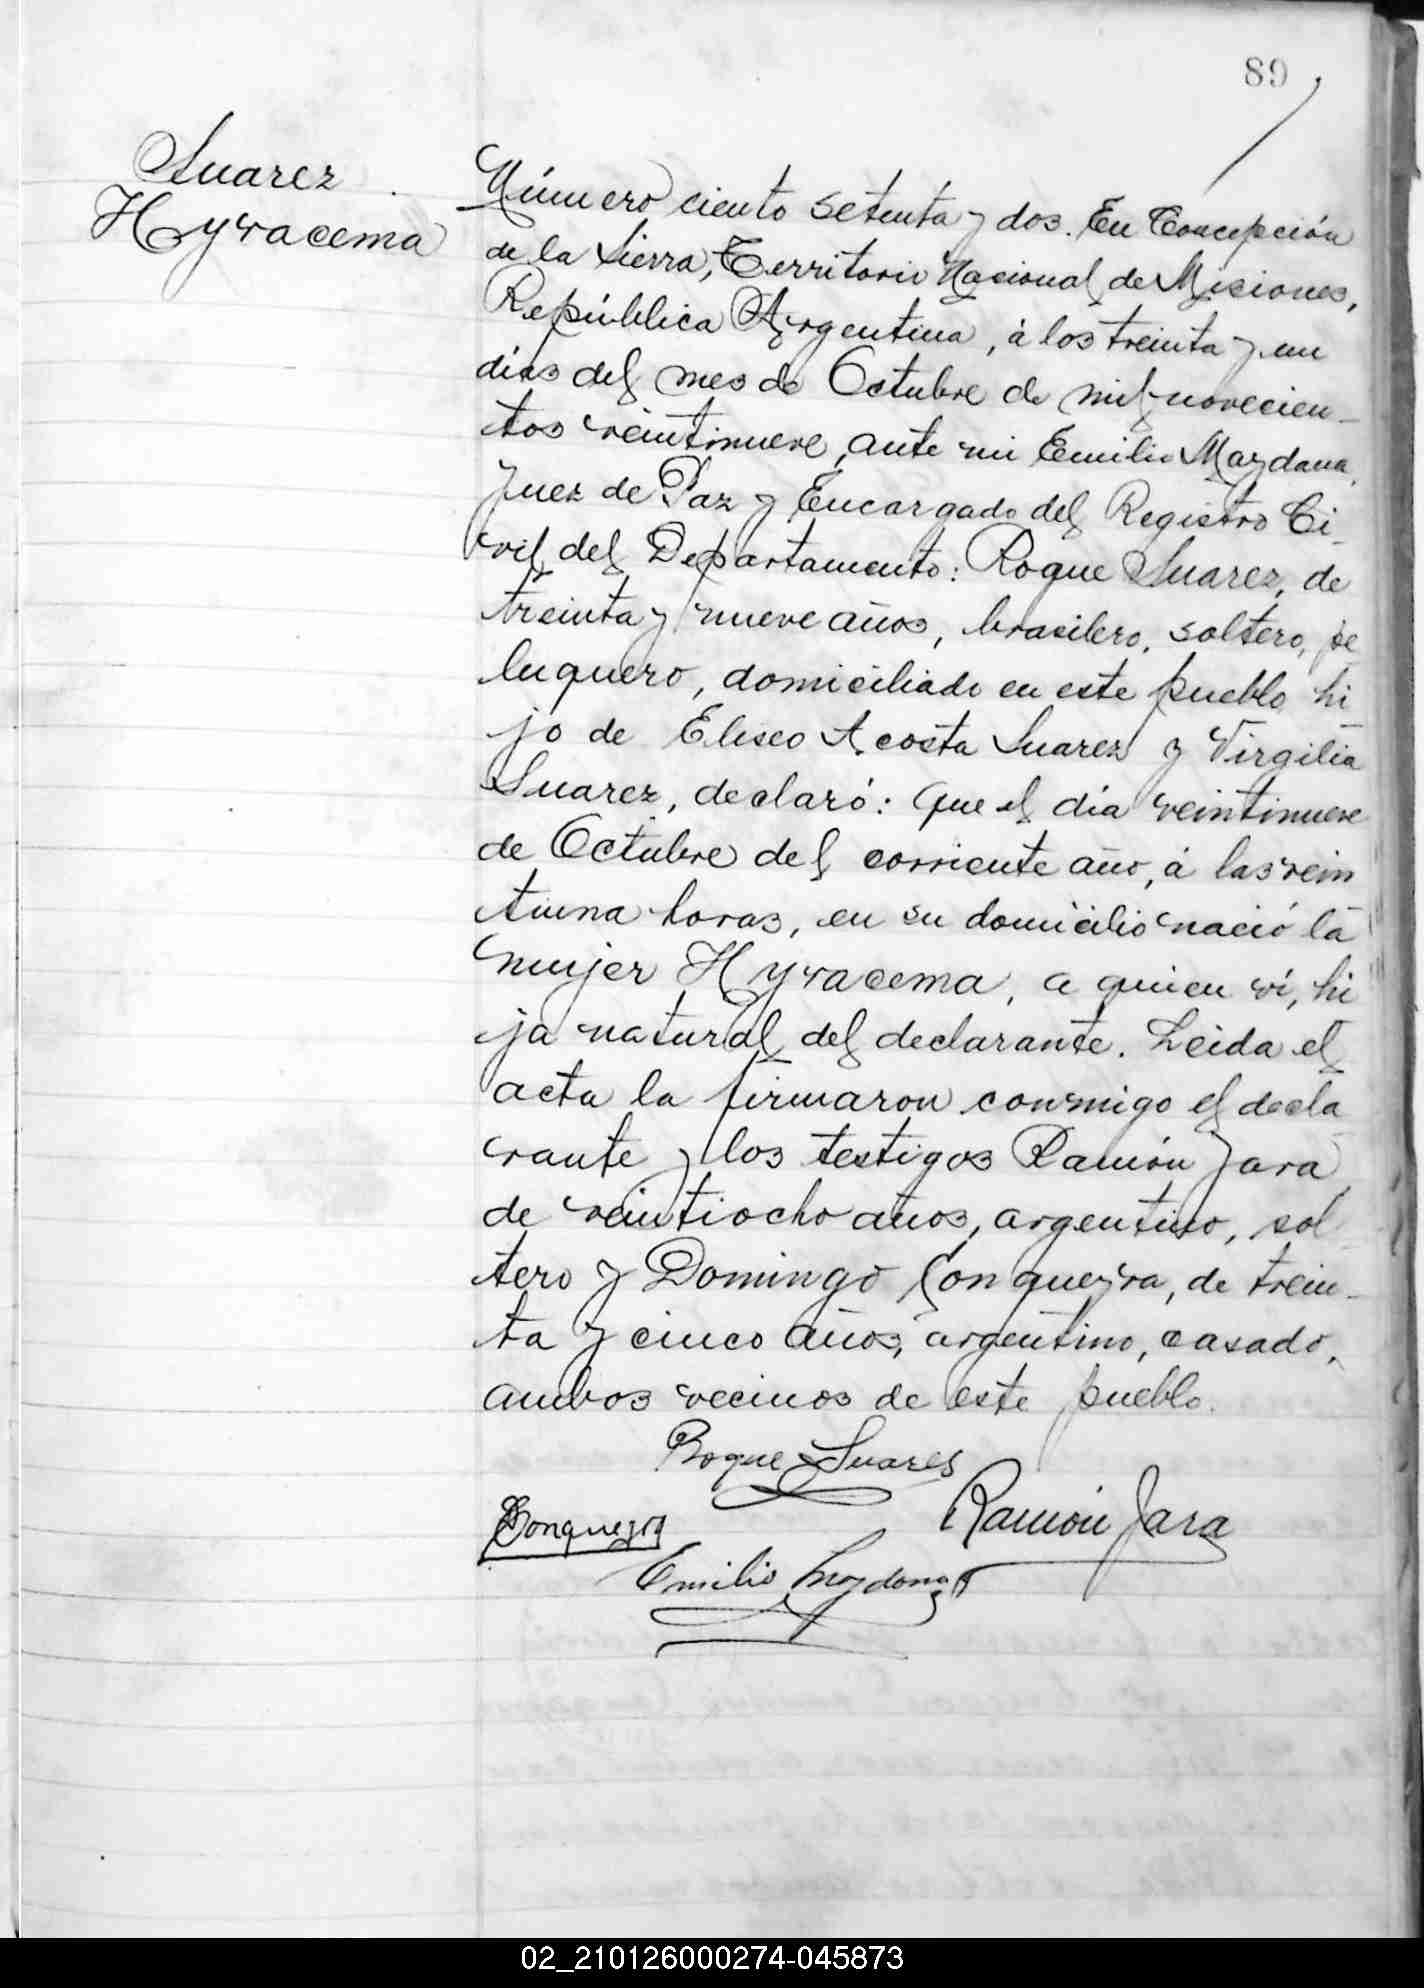 89
Suarez
Hyracema
Número ciento setenta y dos. En Concepción
de la Sierra, Territorio Nacional de Misiones,
República Argentina, á los treinta y un
días del mes de Octubre de mil novecien-
tos veintinueve, ante mi Emilio Maydana,
Juez de Paz y Encargado del Registro Ci-
vil del Departamento: Roque Suarez, de
treinta y nueve años, brasilero, soltero, pe
luquero, domiciliado en este pueblo hi
jo de Eliseo Acosta Suarez y Virgilia
Suarez, declaró: Que el día veintinueve
de Octubre del corriente año, á las vein
tiuna horas, en su domicilio nació la
mujer Hyracema, a quien ví, hi
ja natural del declarante. Leida el
acta la firmaron conmigo el decla
rante y los testigos Ramón Jara
de veintiocho años, argentino, sol
tero y Domingo Conqueyra, de trein-
ta y cinco años, argentino, casado,
ambos vecinos de este pueblo.
Roque Suares
Ramón Jara
Emilio Maydana
02_210126000274-045873